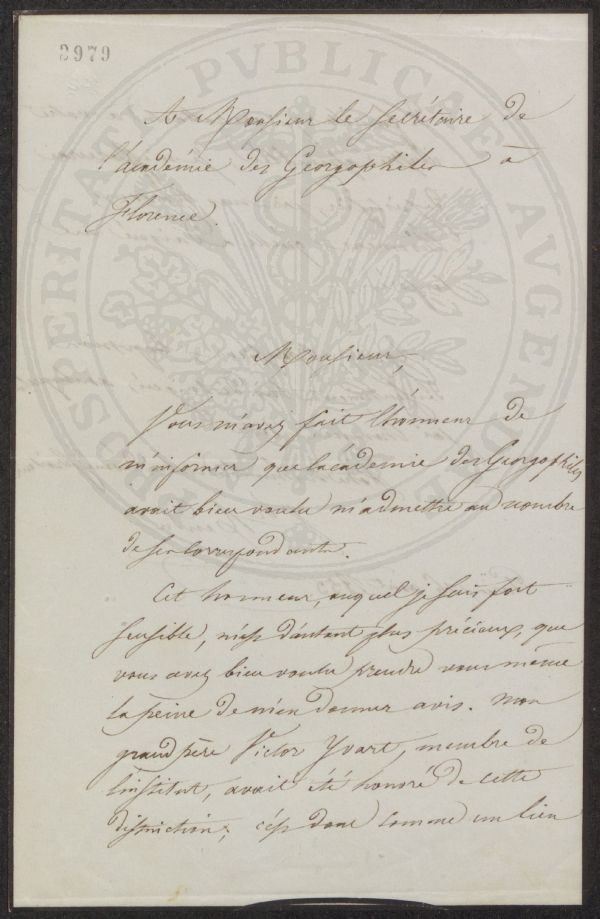 3979
PROSPERITATI PVBLICAE AVGENDAE
A Monsieur le Secrétaire de
l'académie des Georgophiles à
Florence.
Monsieur,
Vous m'avez fait l'honneur de
m'informer que l'académie des Georgophiles
avait bien voulu m'admettre au nombre
de ses correspondants.
Cet honneur, auquel je suis fort
sensible, m'est d'autant plus précieux, que
vous avez bien voulu prendre vous même
la peine de m'en donner avis. Mon
grand père Victor Yvart, membre de
l'institut, avait été honoré de cette
distinction; c'est donc comme un lien